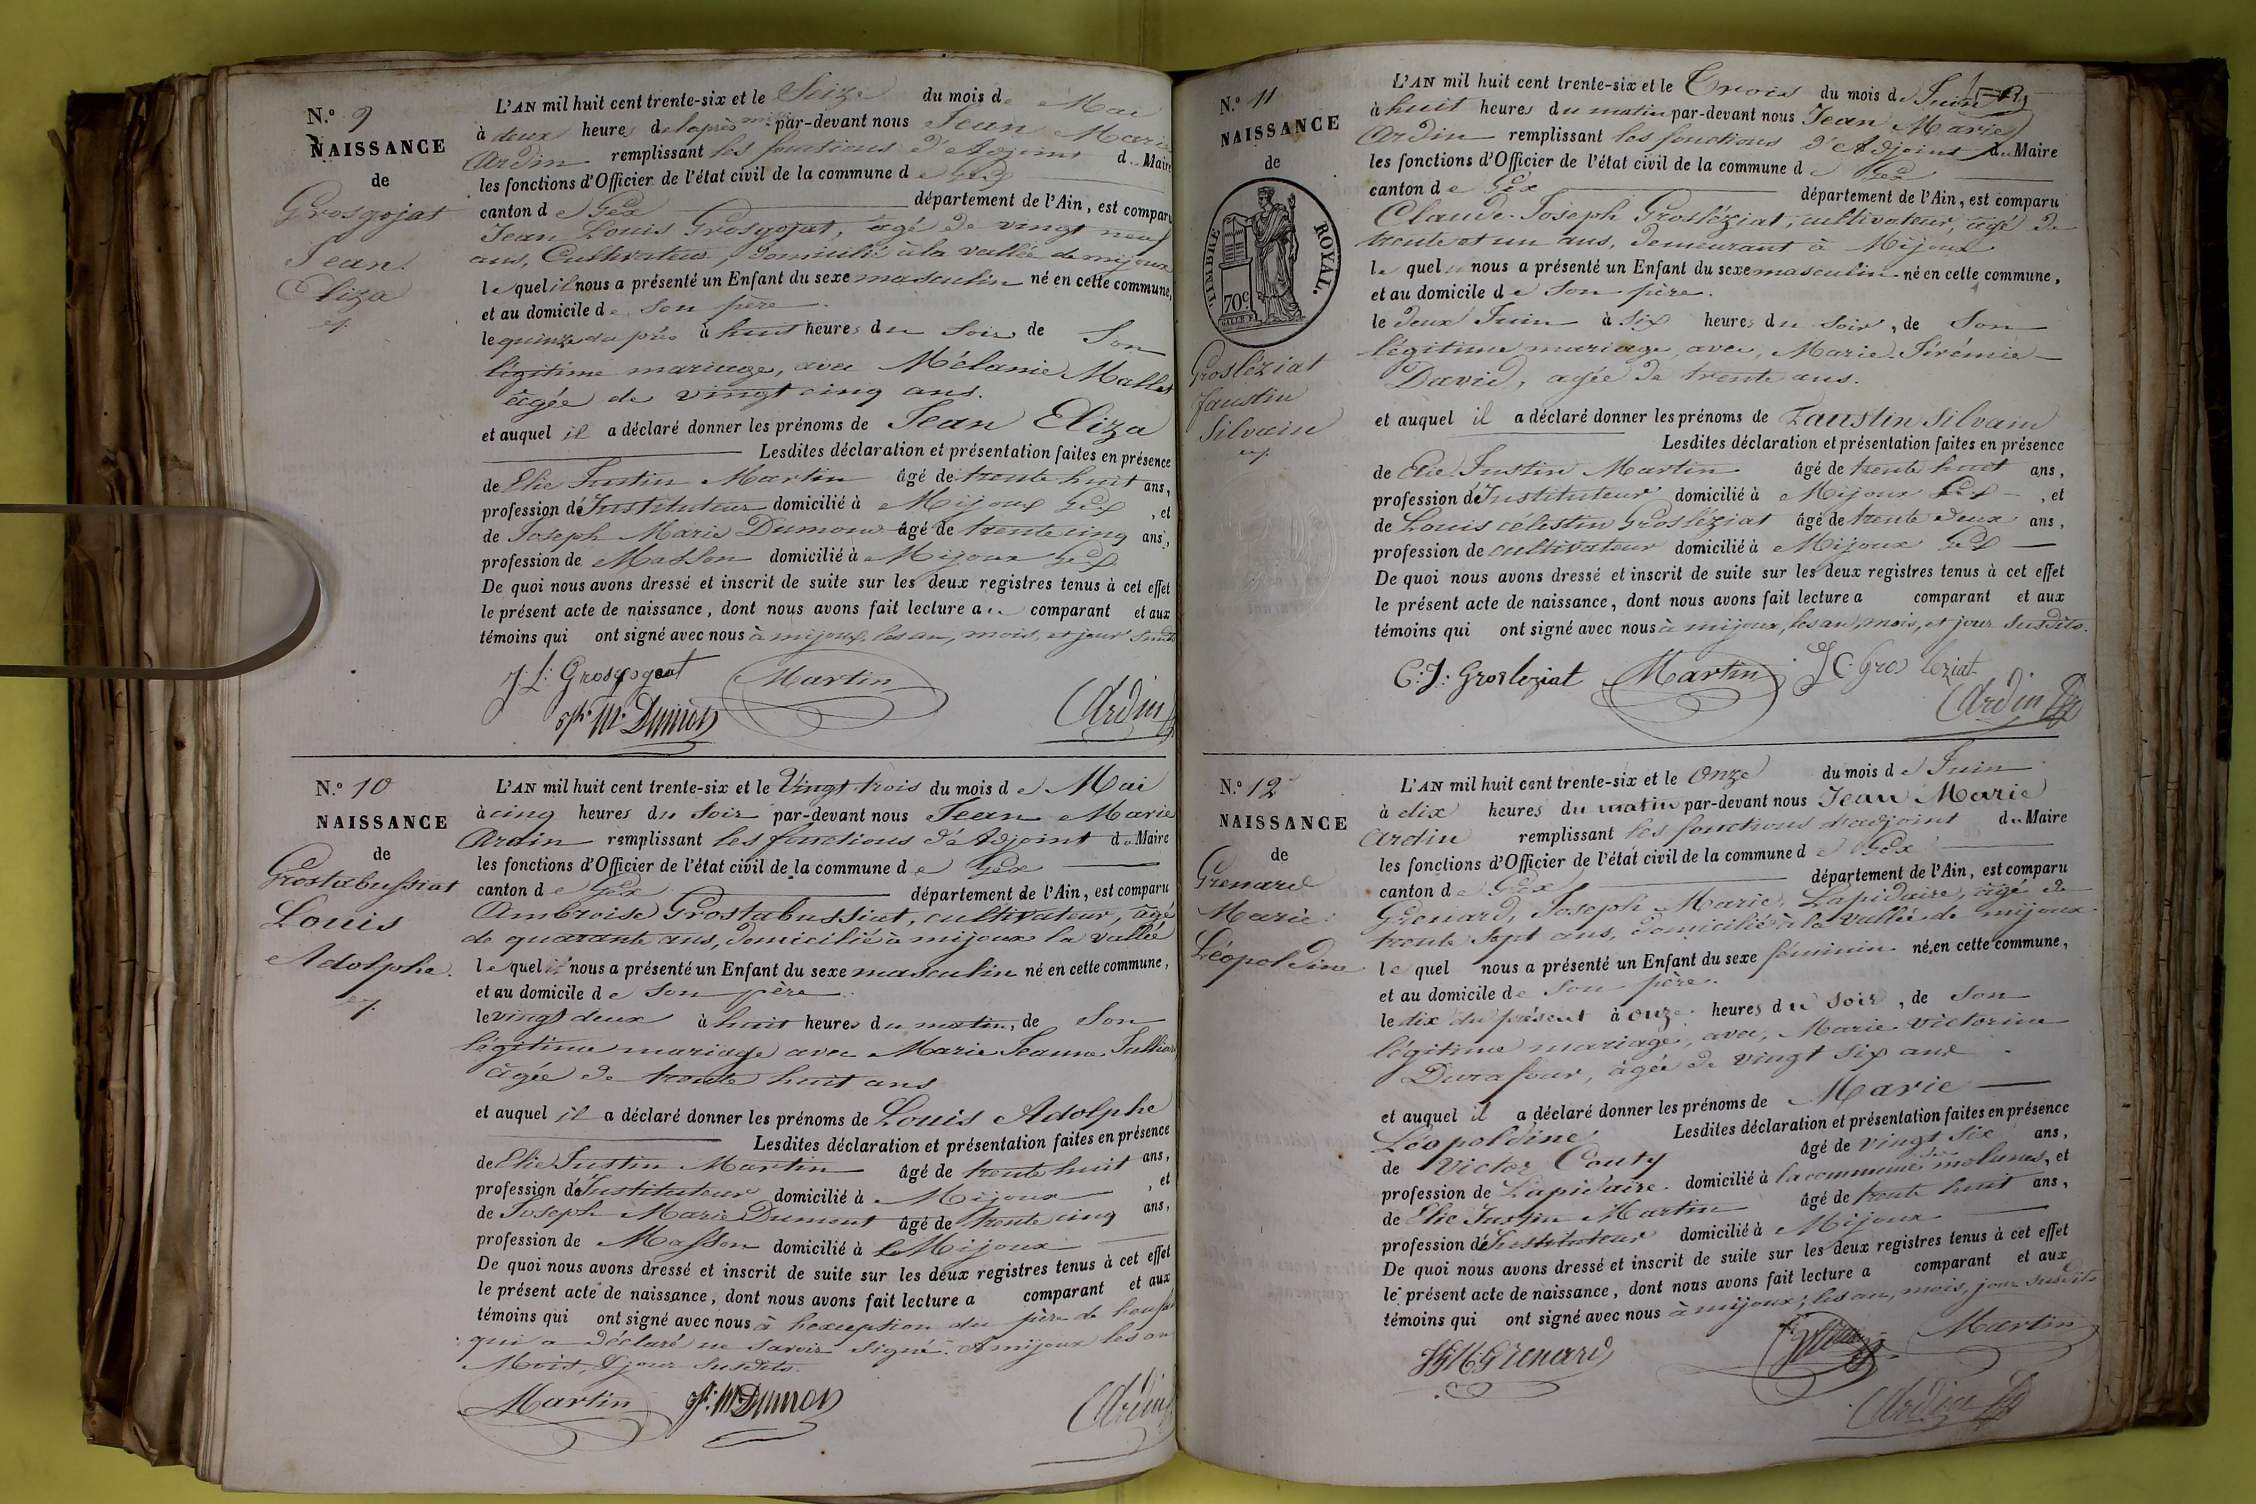 N.º 9
NAISSANCE
de
Grosgojat
Jean
Eliza
L'AN mil huit cent trente-six et le Seize du mois de Mai
à deux heures de l'après midi par-devant nous Jean Marie
Ardin remplissant les fonctions d'Adjoint du Maire
les fonctions d'Officier de l'état civil de la commune de Gex
canton de Gex département de l'Ain, est comparu
Jean Louis Grosgojat, âgé de vingt neuf
ans, Cultivateur, domicilié à la vallée de mijoux
lequel il nous a présenté un Enfant du sexe masculin né en cette commune,
et au domicile de son père.
le quinze du près à huit heures du soir de Son
légitime mariage, avec Mélanie Mallet
âgée de vingt cinq ans.
et auquel il a déclaré donner les prénoms de Jean Eliza
Lesdites déclaration et présentation faites en présence
de Elie Justin Martin âgé de trente huit ans,
profession d'Instituteur domicilié à Mijoux Gex, et
de Joseph Marie Dumont âgé de trente cinq ans,
profession de Masson domicilié à Mijoux Gex
De quoi nous avons dressé et inscrit de suite sur les deux registres tenus à cet effet
le présent acte de naissance, dont nous avons fait lecture au comparant et aux
témoins qui ont signé avec nous à mijoux, les an, mois, et jour susdits
J. L. Grosgogeat Martin
Jh. M. Dumont Ardin
N.º 10
NAISSANCE
de
Grostabussiat
Louis
Adolphe.
L'AN mil huit cent trente-six et le Vingt trois du mois de Mai
à cinq heures du soir par-devant nous Jean Marie
Ardin remplissant les fonctions d'Adjoint du Maire
les fonctions d'Officier de l'état civil de la commune de Gex
canton de Gex département de l'Ain, est comparu
Ambroise Grostabussiat, cultivateur, âgé
de quarante ans, domicilié à mijoux la vallée
lequel il nous a présenté un Enfant du sexe masculin né en cette commune,
et au domicile de son père.
le vingt deux à huit heures du matin, de Son
légitime mariage avec Marie Jeanne Julliard
âgée de trente huit ans
et auquel il a déclaré donner les prénoms de Louis Adolphe
Lesdites déclaration et présentation faites en présence
de Elie Justin Martin âgé de trente huit ans,
profession d'Instituteur domicilié à Mijoux, et
de Joseph Marie Dumont âgé de trente cinq ans,
profession de Masson domicilié à Mijoux
De quoi nous avons dressé et inscrit de suite sur les deux registres tenus à cet effet
le présent acte de naissance, dont nous avons fait lecture a comparant et aux
témoins qui ont signé avec nous à l'exception du père de l'enfant
qui a déclaré ne savoir signé. A mijoux les an
Mois, & jour susdits.
Martin Jh. M. Dumont Ardin
N.º 11
NAISSANCE
de
TIMBRE ROYAL.
70 c
Grosléziat
Faustin
Silvain
L'AN mil huit cent trente-six et le Trois du mois de Juin
à huit heures du matin par-devant nous Jean Marie
Ardin remplissant les fonctions d'Adjoint du Maire
les fonctions d'Officier de l'état civil de la commune de Gex
canton de Gex département de l'Ain, est comparu
Claude-Joseph Grosléziat, cultivateur, âgé de
trente et un ans, demeurant à Mijoux
lequel nous a présenté un Enfant du sexe masculin né en cette commune,
et au domicile de son père.
le deux Juin à six heures du soir, de Son
légitime mariage, avec, Marie Jérémie
David, agée de trente ans.
et auquel il a déclaré donner les prénoms de Faustin Silvain
Lesdites déclaration et présentation faites en présence
de Elie Justin Martin âgé de trente huit ans,
profession d'Instituteur domicilié à Mijoux Gex, et
de Louis célestin Grosléziat âgé de trente deux ans,
profession de cultivateur domicilié à Mijoux Gex
De quoi nous avons dressé et inscrit de suite sur les deux registres tenus à cet effet
le présent acte de naissance, dont nous avons fait lecture a comparant et aux
témoins qui ont signé avec nous à mijoux, les an, mois, et jour susdits.
C: J: Grosleziat Martin Gros leziat
Ardin
N.º 12
NAISSANCE
de
Grenard
Marie
Léopoldine
L'AN mil huit cent trente-six et le Onze du mois de Juin
à dix heures du matin par-devant nous Jean Marie
Ardin remplissant les fonctions d'adjoint du Maire
les fonctions d'Officier de l'état civil de la commune de Gex
canton de Gex département de l'Ain, est comparu
Grenard, Joseph Marie, Lapidaire, âgé de
trente sept ans, domicilié à la vallée de mijoux
lequel nous a présenté un Enfant du sexe féminin né en cette commune,
et au domicile de son père.
le dix du présent à onze heures du soir, de Son
légitime mariage, avec, Marie victorine
Durafour, âgée de vingt six ans
et auquel il a déclaré donner les prénoms de Marie
Léopoldine Lesdites déclaration et présentation faites en présence
de Victor Couty âgé de vingt six ans,
profession de Lapidaire domicilié à la commune des molunes, et
de Elie Justin Martin âgé de trente huit ans,
profession d'Instituteur domicilié à Mijoux
De quoi nous avons dressé et inscrit de suite sur les deux registres tenus à cet effet
le présent acte de naissance, dont nous avons fait lecture a comparant et aux
témoins qui ont signé avec nous à mijoux; les an, mois, jour susdits
Grenard Martin
Ardin